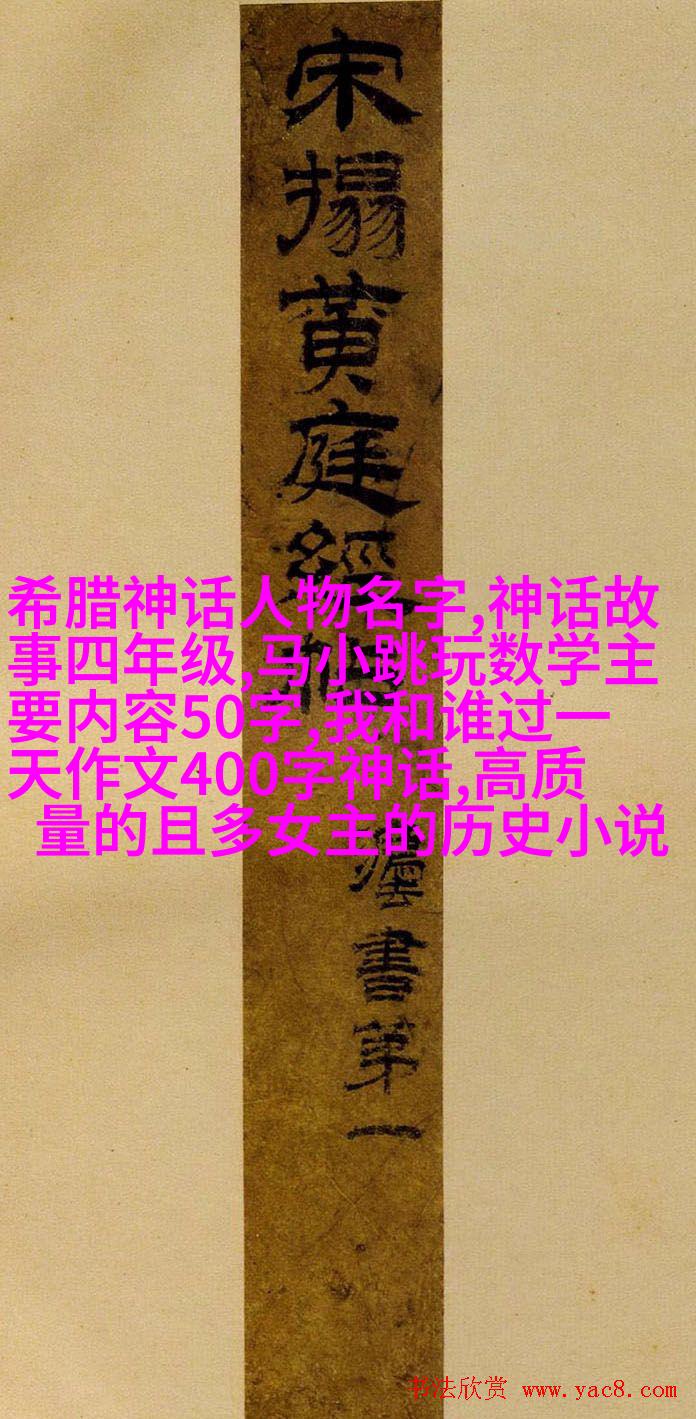 宋搨黄庭經
書第一
希腊神话人物名字,神话故
事四年级,马小跳玩数学主
要内容50字,我和谁过一
天作文400字神话,高质
量的且多女主的历史小说
书法欣赏 www.yac8.com